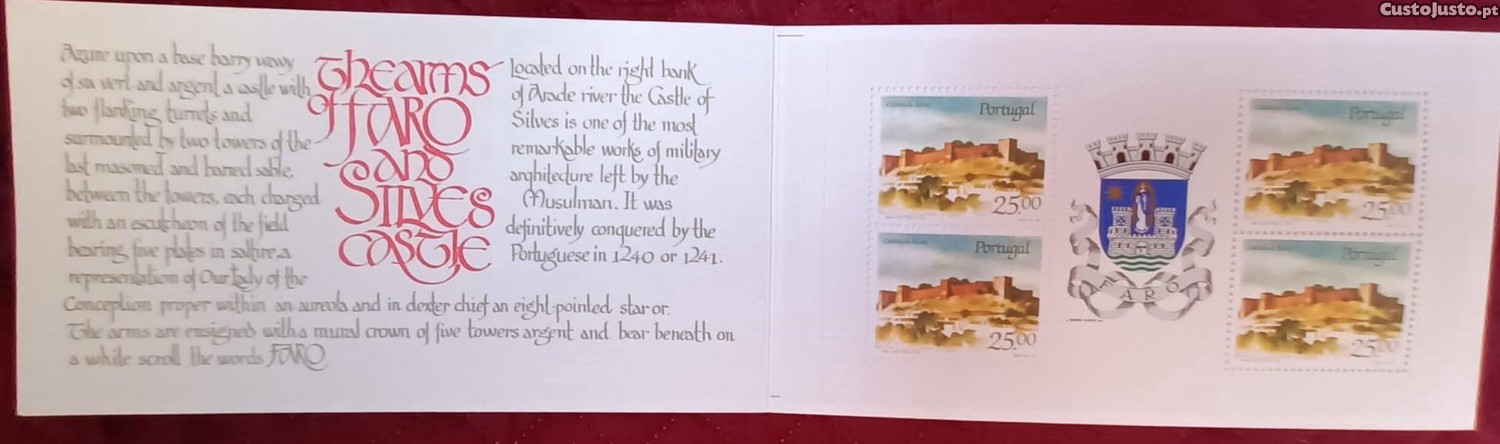 CustoJusto.pt
Azure upon a base barry wavy
of six vert and argent a castle with
two flanking turrets and
surmounted by two towers of the
last masoned and barred sable,
between the towers, each charged
with an escutcheon of the field
bearing five plates in saltire, a
representation of Our Lady of the
Conception proper within an aureola and in dexter chief an eight-pointed star or.
The arms are ensigned with a mural crown of five towers argent and bear beneath on
a while scroll the words FARO
THE ARMS
of FARO
AND
SILVES
CASTLE
Located on the right bank
of Arade river the Castle of
Silves is one of the most
remarkable works of military
arghitecture left by the
Musulman. It was
definitively conquered by the
Portuguese in 1240 or 1241.
Portugal
25.00
Portugal
25.00
FARO
Portugal
25.00
Portugal
25.00